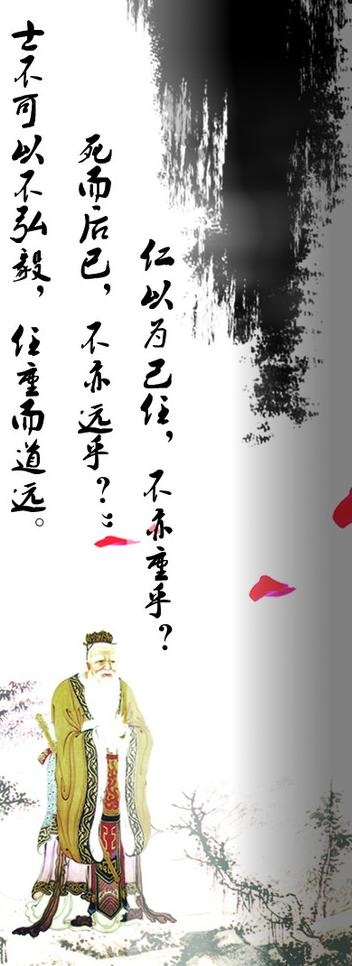 士不可以不弘毅，任重而道远。
死而后已，不亦远乎？：
仁以为己任，不亦重乎？